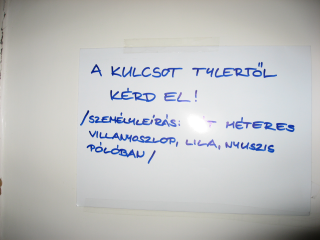 A KULCSOT TYLERTŐL
KÉRD EL!
/SZEMÉLYLEÍRÁS: MÉTERES
VILLANYOSZLOP, LILA, NYUSZIS
PÓLÓBAN/